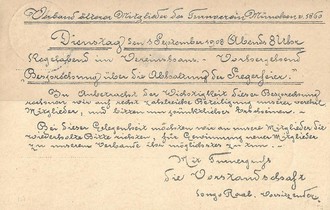 Verband älterer Mitglieder des Turnverein München v. 1860
Dienstag den 1. September 1908 Abends 8 Uhr
Kegelabend im Vereinshaus. - Vorhergehend
Besprechung über die Abhaltung der Siegerfeier.
In Anbetracht der Wichtigkeit dieser Besprechung
rechnen wir auf recht zahlreiche Beteiligung unserer verehrl.
Mitglieder, und bitten um pünktliches Erscheinen. -
Bei dieser Gelegenheit möchten wir an unsere Mitglieder die
wiederholte Bitte richten, für Gewinnung neuer Mitglieder
zu unserem Verbande ihr möglichstes zu tun. -
Mit Turnergruß
die Vorstandschaft
Raab, Vorsitzender.